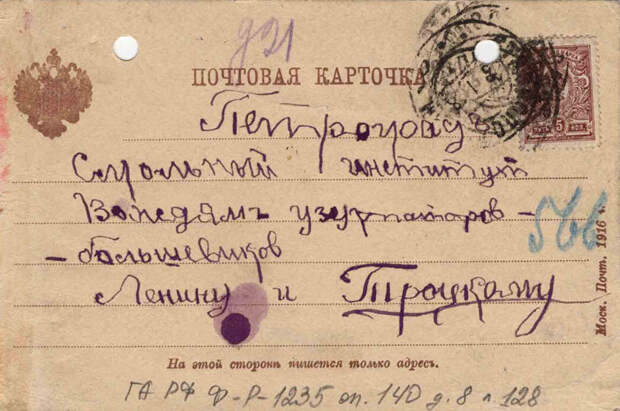 921
ПОЧТОВАЯ КАРТОЧКА
Петроград
Смольный институт
Вождямъ узурпаторов -
- большевиков
Ленину и Троцкому
566
Моск. Почт. 1916 г.
На этой сторонѣ пишется только адресъ.
ГА РФ Ф-Р-1235 оп. 140 д. 8 л. 128